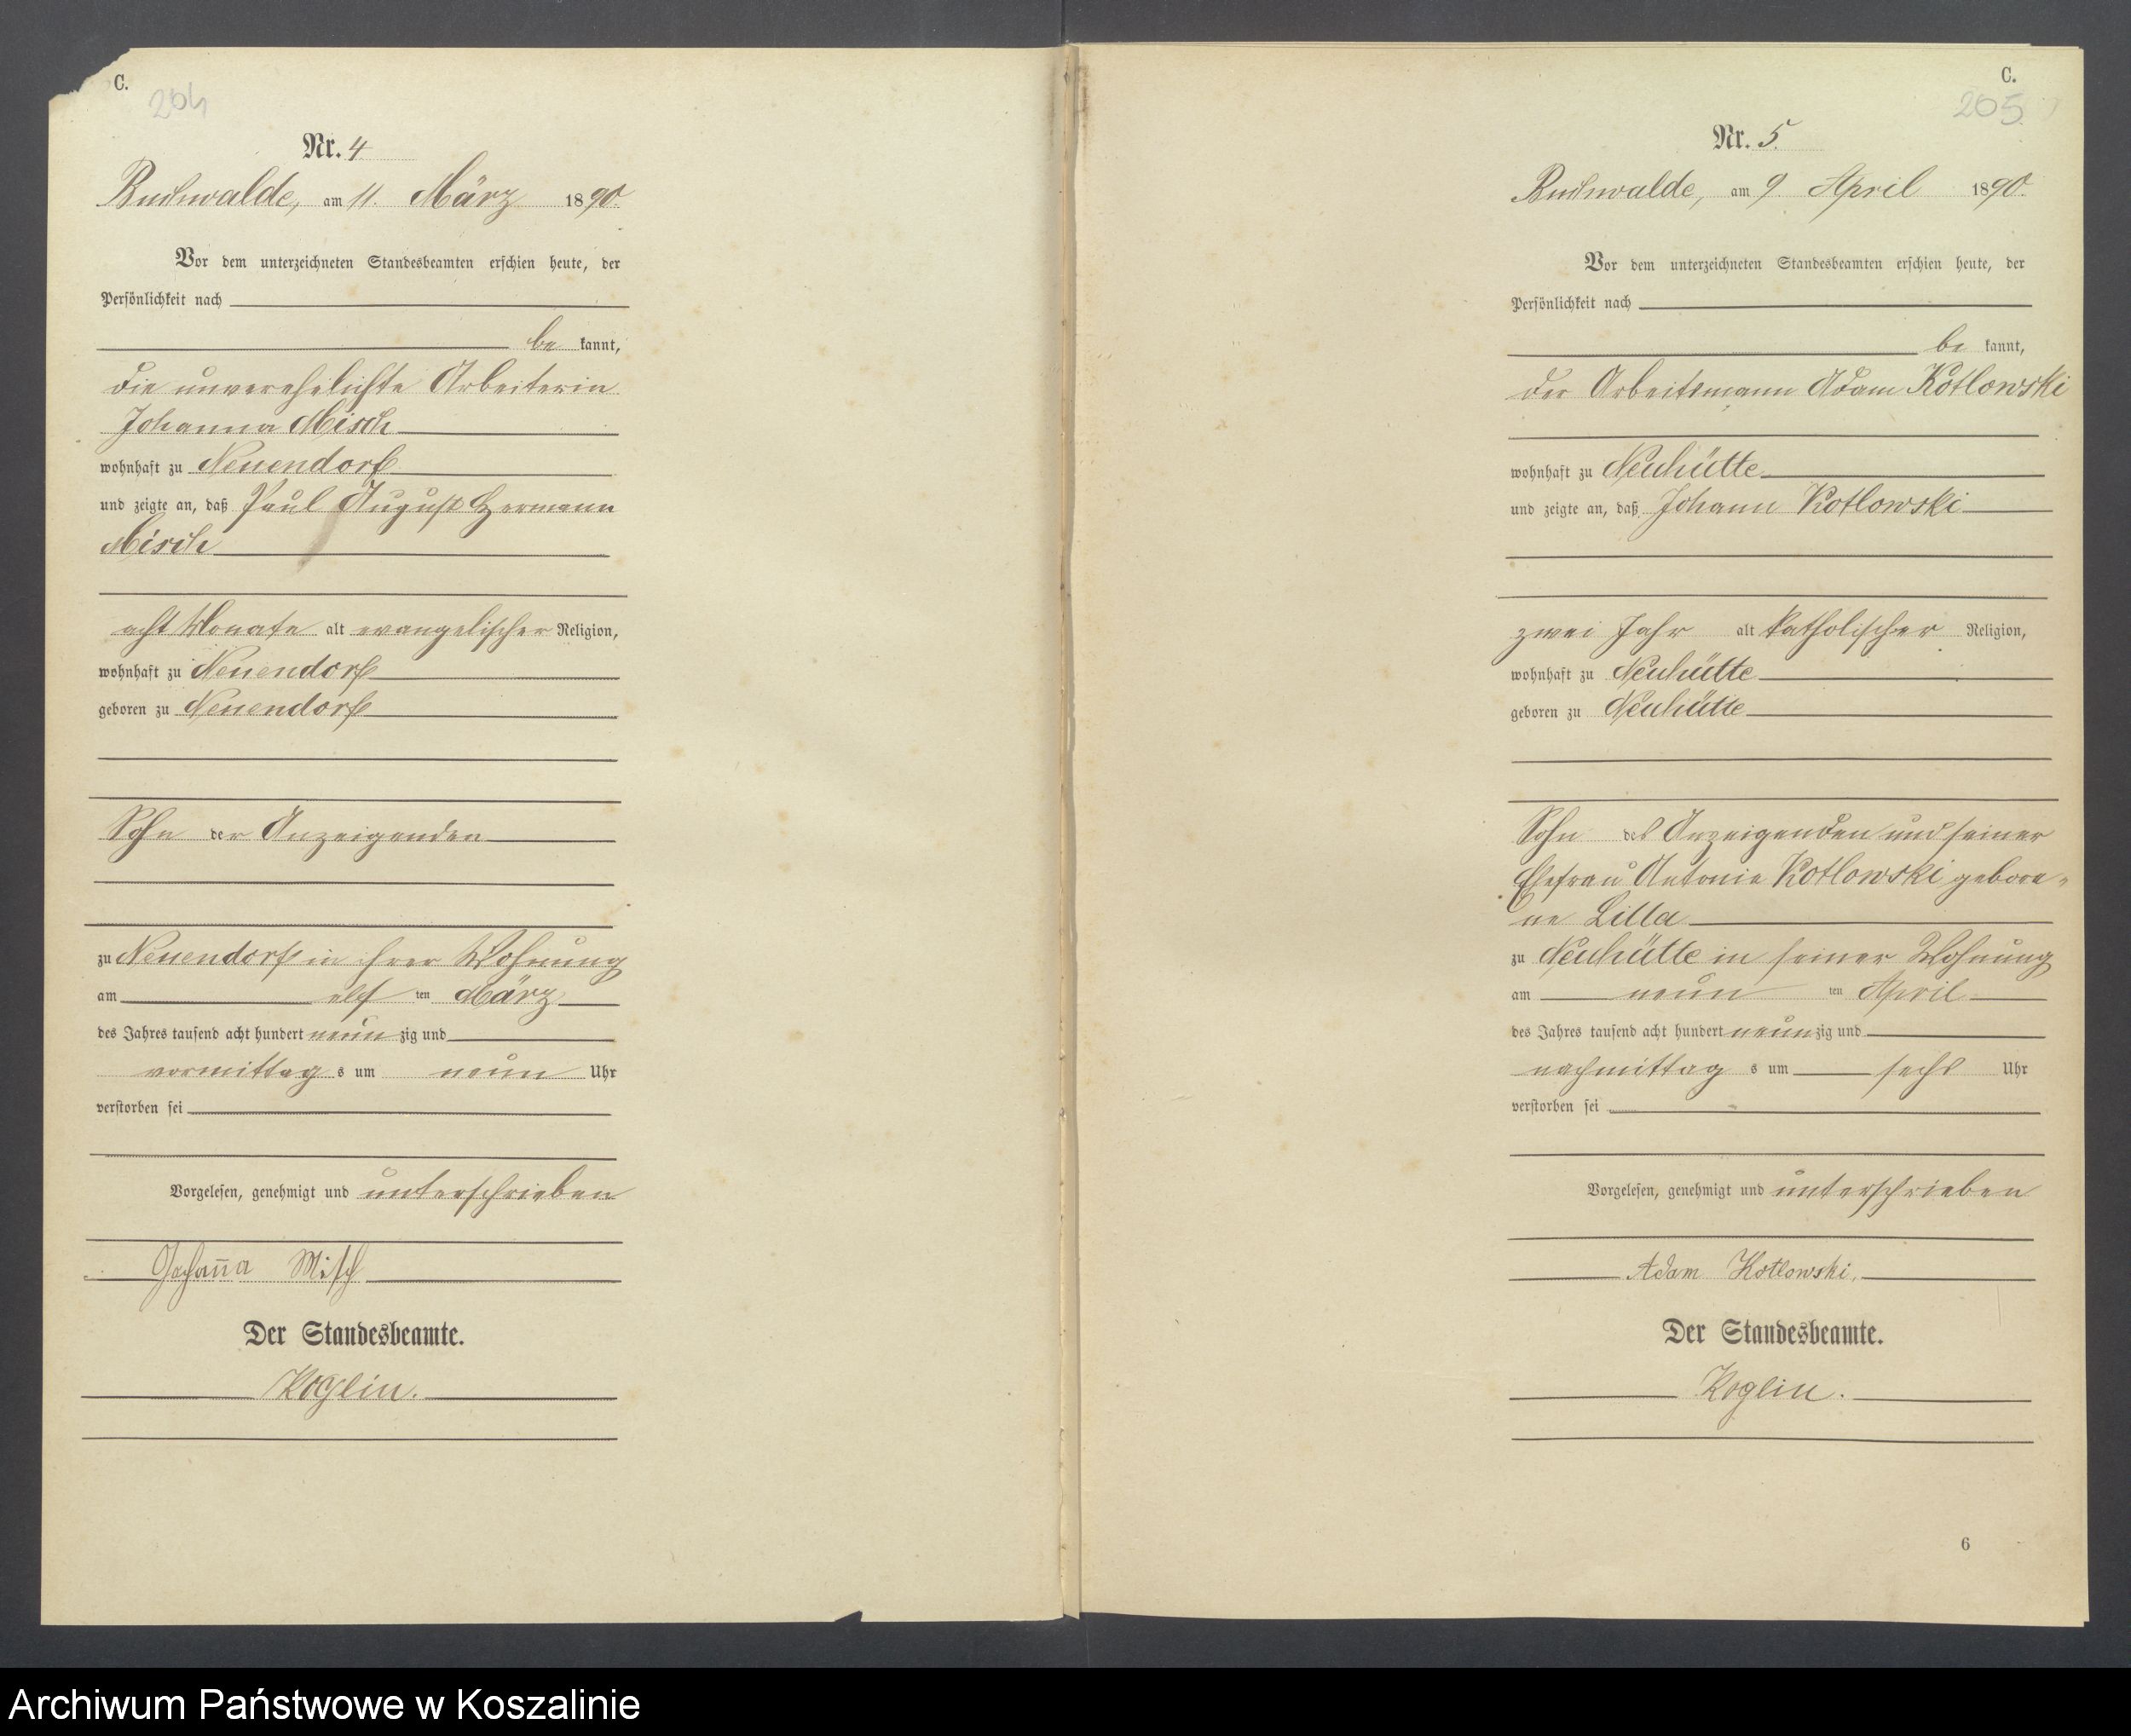 C.
204
Nr. 4
Buchwalde, am 11. März 1890.
Vor dem unterzeichneten Standesbeamten erschien heute, der
Persönlichkeit nach
be kannt,
die unverehelichte Arbeiterin
Johanna Misch
wohnhaft zu Neuendorf
und zeigte an, daß Paul August Hermann
Misch
acht Monate alt evangelischer Religion,
wohnhaft zu Neuendorf
geboren zu Neuendorf
Sohn der Anzeigenden
zu Neuendorf in ihrer Wohnung
am elf ten März
des Jahres tausend acht hundert neun zig und
vormittag s um neun Uhr
verstorben sei
Vorgelesen, genehmigt und unterschrieben
Johanna Misch
Der Standesbeamte.
Koglin.
C.
205
Nr. 5.
Buchwalde, am 9 April 1890.
Vor dem unterzeichneten Standesbeamten erschien heute, der
Persönlichkeit nach
be kannt,
der Arbeitsmann Adam Kotlowski
wohnhaft zu Neuhütte
und zeigte an, daß Johann Kotlowski
zwei Jahr alt katholischer Religion,
wohnhaft zu Neuhütte
geboren zu Neuhütte
Sohn des Anzeigenden und seiner
Ehefrau Antonie Kotlowski gebore-
ne Lilla
zu Neuhütte in seiner Wohnung
am neun ten April
des Jahres tausend acht hundert neunzig und
nachmittag s um sechs Uhr
verstorben sei
Vorgelesen, genehmigt und unterschrieben
Adam Kotlowski.
Der Standesbeamte.
Koglin.
6
Archiwum Państwowe w Koszalinie